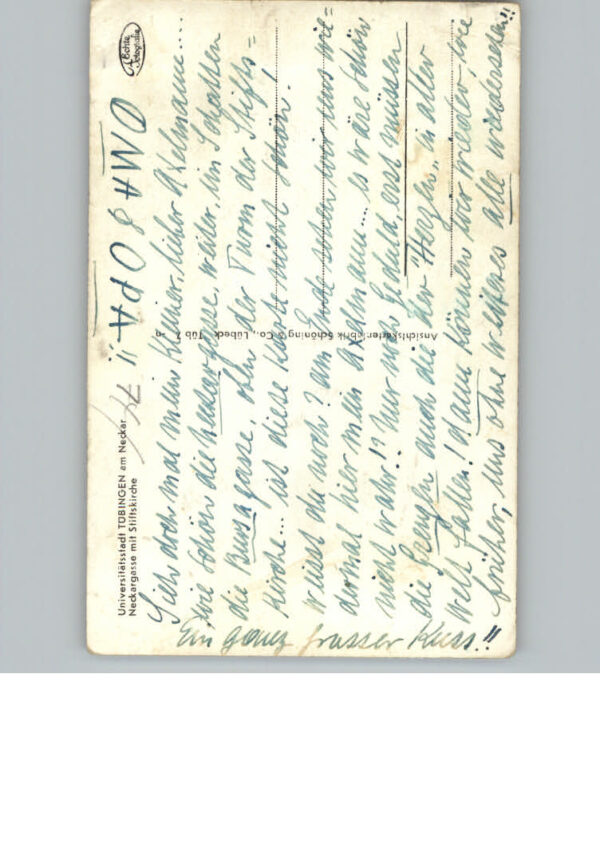 Universitätsstadt TÜBINGEN am Neckar
Neckargasse mit Stiftskirche
Echte
Fotografie
OMA & OPA !!
Sieh doch mal mein Kleiner, lieber Axelmann....
wie schön die Neckargasse, weiter, im Schatten
die Bursagasse, oben der Turm der Stifts=
kirche... ist diese Karte nicht schön!
weisst du noch? am Ende sehen wir uns wie=
dermal hier mein Axelmann.... es wäre schön
nicht wahr!? Nur noch Geduld, erst müssen
die Grenzen auch die der "Herzen" in aller
Welt fallen! Dann können wir wieder, wie
früher, uns ohne weiteres alle wiedersehen!!
Ein ganz grosser Kuss!!
Ansichtskartenfabrik Schöning & Co., Lübeck Tüb 7